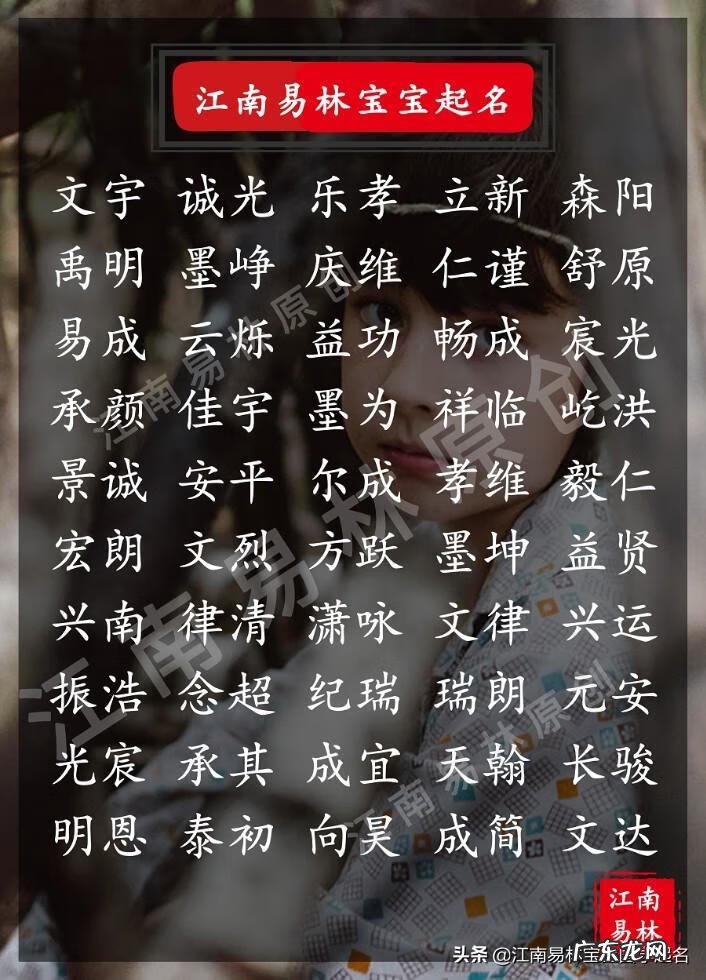 江南易林宝宝起名
文宇 诚光 乐孝 立新 森阳
禹明 墨峥 庆维 仁谨 舒原
易成 云烁 益功 畅成 宸光
承颜 佳宇 墨为 祥临 屹洪
景诚 安平 尔成 孝维 毅仁
宏朗 文烈 方跃 墨坤 益贤
兴南 律清 潇咏 文律 兴运
振浩 念超 纪瑞 瑞朗 元安
光宸 承其 成宜 天翰 长骏
明恩 泰初 向昊 成简 文达
江南易林原创
江南易林原创
江南易林原创
江南
易林
头条 @江南易林宝宝起名
广东龙网